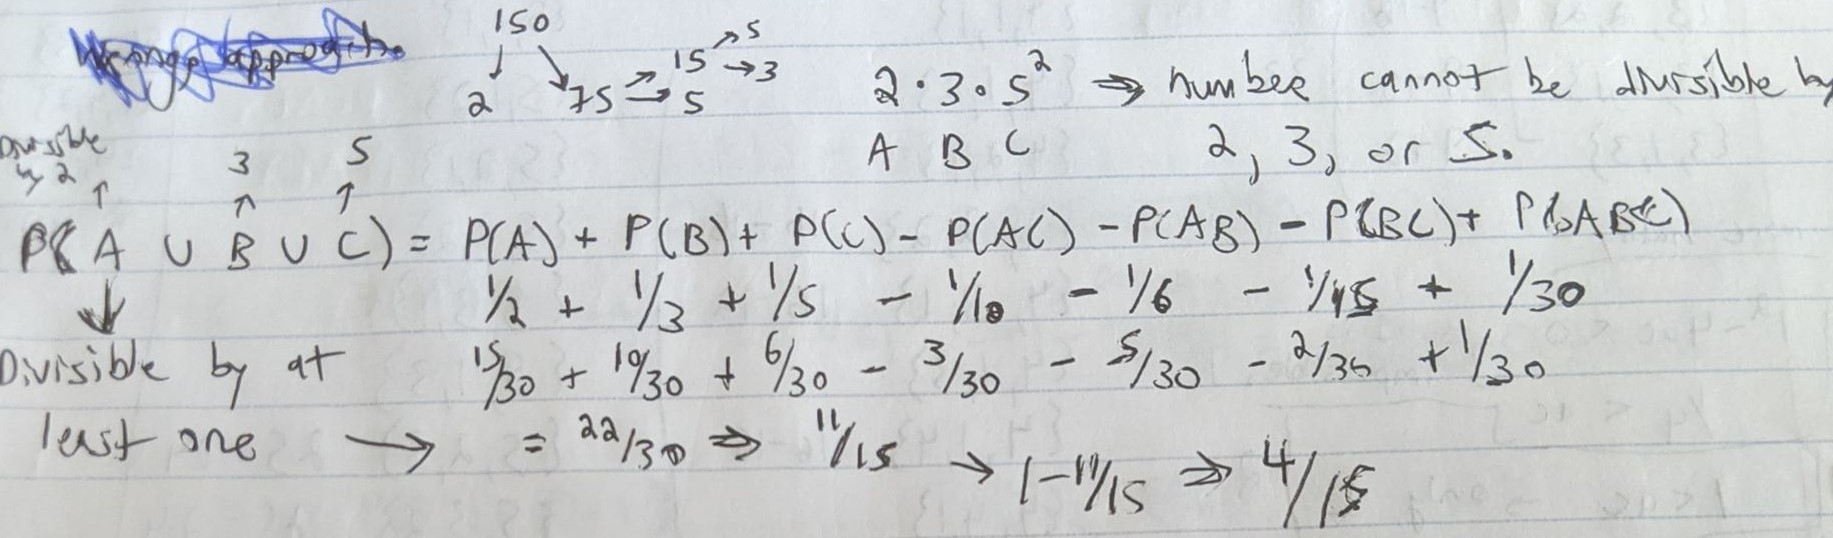 150
2 75 ⇉ 15 → 5 → 3
5
2·3·5² ⇒ number cannot be divisible by
A B C 2, 3, or 5.
Divisible by 2 ↑ 3 ↑ 5 ↑
P(A ∪ B ∪ C) = P(A) + P(B) + P(C) - P(AC) - P(AB) - P(BC) + P(ABC)
1/2 + 1/3 + 1/5 - 1/10 - 1/6 - 1/15 + 1/30
Divisible by at 15/30 + 10/30 + 6/30 - 3/30 - 5/30 - 2/30 + 1/30
least one → = 22/30 ⇒ 11/15 → 1-11/15 ⇒ 4/15